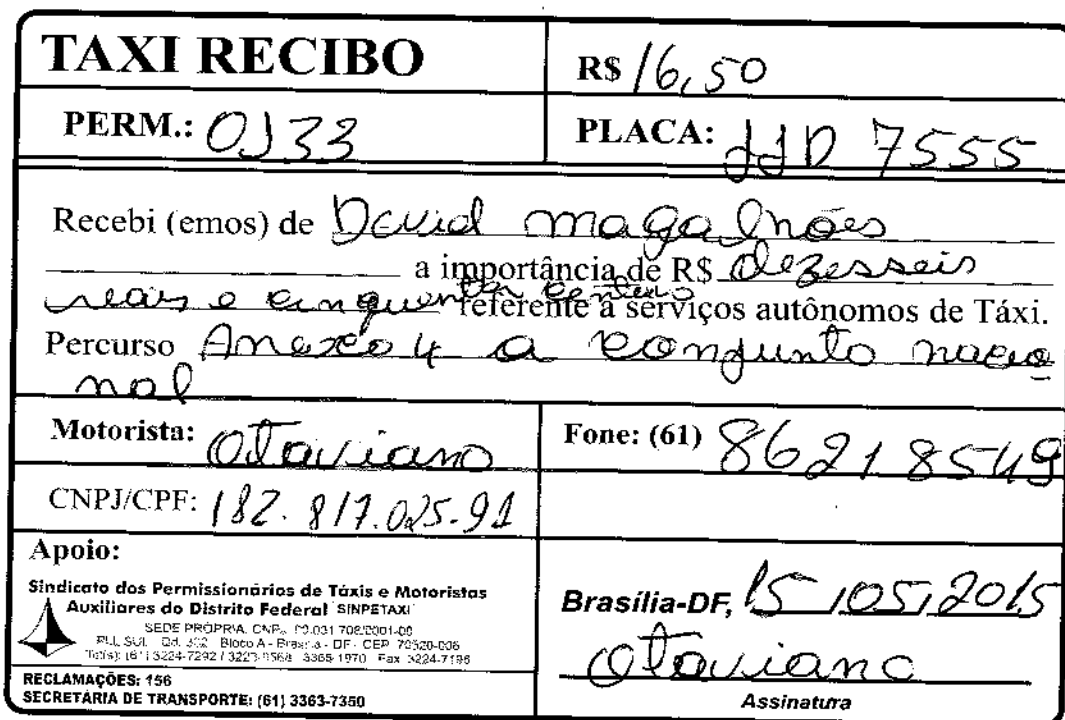 TAXI RECIBO
R$ 16,50
PERM.: 0133
PLACA: JJD 7555
Recebi (emos) de David magalhães
a importância de R$ dezesseis
reais e cinquenta centavos referente a serviços autônomos de Táxi.
Percurso Anexo 4 a conjunto nacio
nal
Motorista: Otaviano
Fone: (61) 8621 8549
CNPJ/CPF: 182.817.025-91
Apoio:
Sindicato dos Permissionários de Táxis e Motoristas
Auxiliares do Distrito Federal SINPETAXI
SEDE PRÓPRIA
Bloco A - Brasília - DF - CEP
3224-7292 / 3365-1970 Fax 3224-7196
RECLAMAÇÕES: 156
SECRETÁRIA DE TRANSPORTE: (61) 3363-7350
Brasília-DF, 15 / 05 / 2015
Otaviano
Assinatura